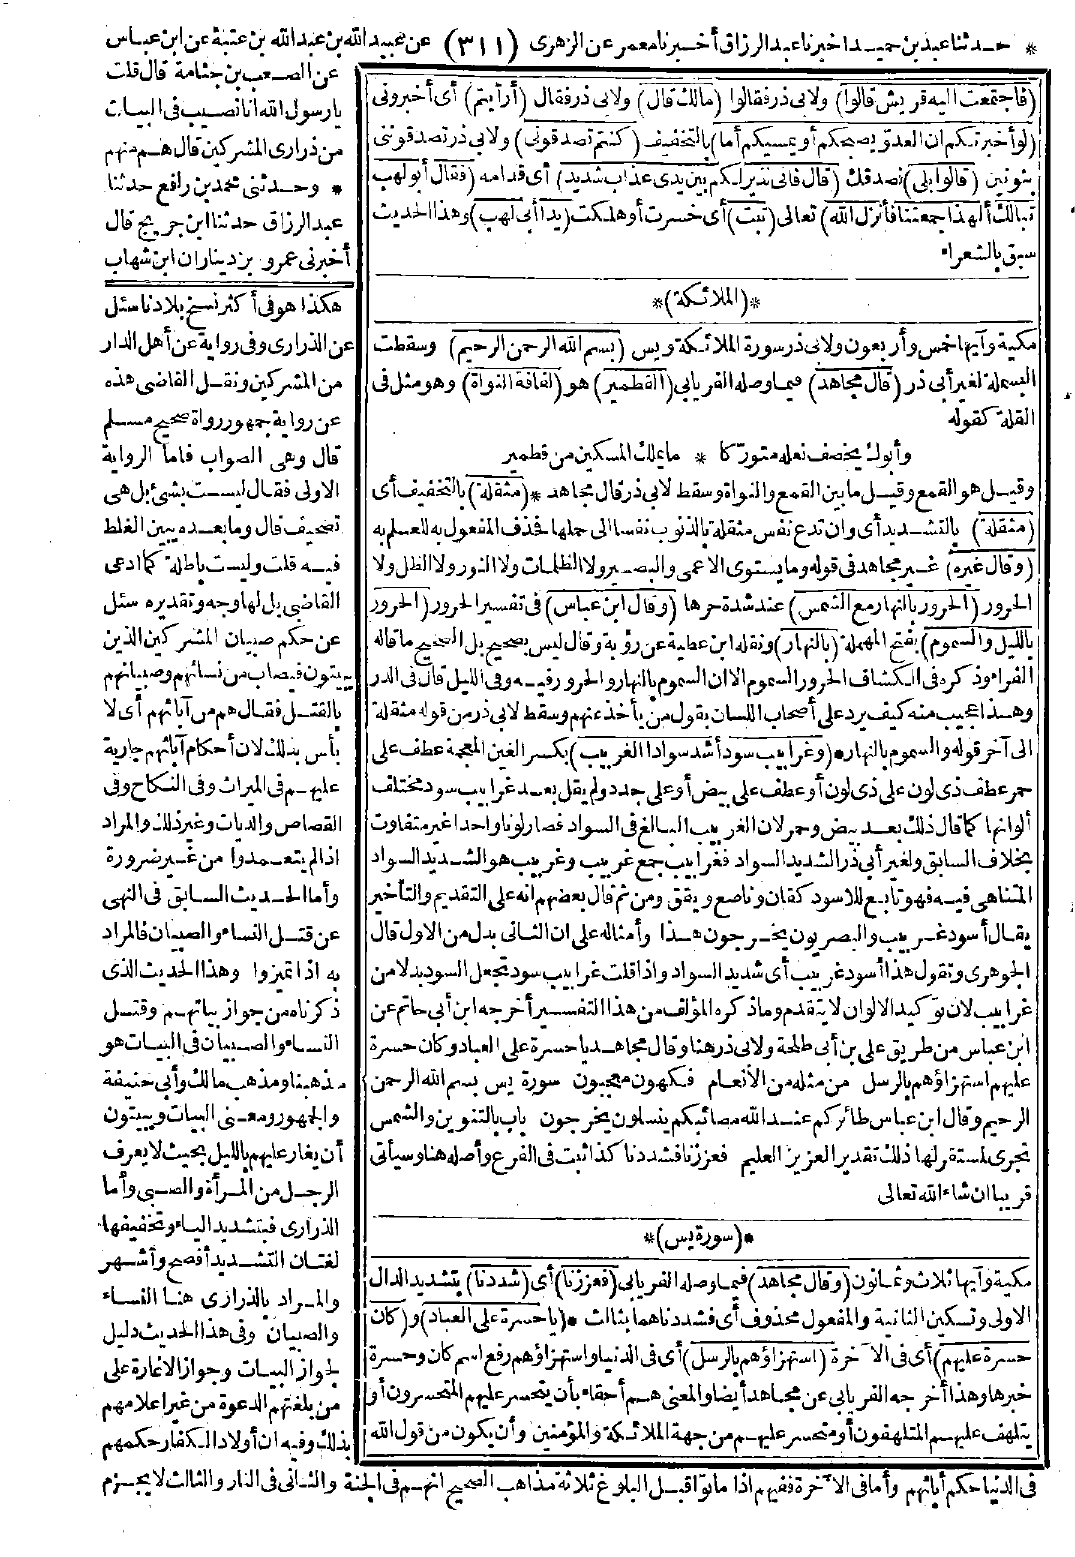 * حدثنا عبد بن حميد اخبرنا عبد الرزاق أخبرنا معمر عن الزهرى (٣١١) عن عبيد الله بن عبد الله بن عتبة عن ابن عباس
عن الصعب بن جثامة قال قلت
يا رسول الله انا نصيب فى البيات
من ذرارى المشركين قال هم منهم
* وحدثنى محمد بن رافع حدثنا
عبد الرزاق حدثنا ابن جريج قال
أخبرنى عمرو بن دينار ان ابن شهاب
هكذا هو فى أكثر نسخ بلادنا سئل
عن الذرارى وفى رواية عن أهل الدار
من المشركين ونقل القاضى هذه
عن رواية جمهور رواة صحيح مسلم
قال وهى الصواب فاما الرواية
الاولى فقال ليست بشئ بل هى
تصحيف قال وما بعده يبين الغلط
فيه قلت وليست باطلة كما ادعى
القاضى بل لها وجه وتقديره سئل
عن حكم صبيان المشركين الذين
يبيتون فيصاب من نسائهم وصبيانهم
بالقتل فقال هم من آبائهم أى لا
بأس بذلك لان أحكام آبائهم جارية
عليهم فى الميراث وفى النكاح وفى
القصاص والديات وغير ذلك والمراد
اذا لم يتعمدوا من غير ضرورة
وأما الحديث السابق فى النهى
عن قتل النساء والصبيان فالمراد
به اذا تميزوا وهذا الحديث الذى
ذكرناه من جواز بياتهم وقتل
النساء والصبيان فى البيات هو
مذهبنا ومذهب مالك وأبى حنيفة
والجمهور ومعنى البيات ويبيتون
أن يغار عليهم بالليل بحيث لا يعرف
الرجل من المرأة والصبى وأما
الذرارى فبتشديد الياء وتخفيفها
لغتان التشديد أفصح وأشهر
والمراد بالذرارى هنا النساء
والصبيان وفى هذا الحديث دليل
لجواز البيات وجواز الاغارة على
من بلغتهم الدعوة من غير اعلامهم
بذلك وفيه ان أولاد الكفار حكمهم
(فاجتمعت اليه قريش قالوا) ولابى ذر فقالوا (مالك قال) ولابى ذر فقال (أرأيتم) أى أخبرونى
(لو أخبرتكم ان العدو يصبحكم أو يمسيكم أما) بالتخفيف (كنتم تصدقونى) ولابى ذر تصدقوننى
بنونين (قالوا بلى) نصدقك (قال فانى نذير لكم بين يدى عذاب شديد) أى قدامه (فقال أبو لهب
تبا لك ألهذا جمعتنا فأنزل الله) تعالى (تبت) أى خسرت أو هلكت (يدا أبى لهب) وهذا الحديث
سبق بالشعراء
*(الملائكة)*
مكية وآيها خمس وأربعون ولابى ذر سورة الملائكة ويس (بسم الله الرحمن الرحيم) وسقطت
البسملة لغير أبى ذر (قال مجاهد) فيما وصله الفريابى (القطمير) هو (لفافة النواة) وهو مثل فى
القلة كقوله
وأبوك يخصف نعله متوركا * ما يملك المسكين من قطمير
وقيل هو القمع وقيل ما بين القمع والنواة وسقط لابى ذر قال مجاهد *(مثقلة) بالتخفيف أى
(مثقلة) بالتشديد أى وان تدع نفس مثقلة بالذنوب نفسا الى حملها فحذف المفعول به للعلم به
(وقال غيره) غير مجاهد فى قوله وما يستوى الاعمى والبصير ولا الظلمات ولا النور ولا الظل ولا
الحرور (الحرور بالنهار مع الشمس) عند شدة حرها (وقال ابن عباس) فى تفسير الحرور (الحرور
بالليل والسموم) بفتح المهملة (بالنهار) ونقله ابن عطية عن رؤبة وقال ليس بصحيح بل الصحيح ما قاله
الفراء وذكره فى الكشاف الحرور السموم الا ان السموم بالنهار والحرور فيه وفى الليل قال فى الدر
وهذا عجيب منه كيف يرد على أصحاب اللسان بقول من يأخذ عنهم وسقط لابى ذر من قوله مثقلة
الى آخر قوله والسموم بالنهار *(وغرابيب سود أشد سوادا الغربيب) بكسر الغين المعجمة عطف على
حمر عطف ذى لون على ذى لون أو عطف على بيض أو على جدد ولم يقل بعد غرابيب سود مختلف
ألوانها كما قال ذلك بعد بيض وحمر لان الغربيب البالغ فى السواد فصار لونا واحدا غير متفاوت
بخلاف السابق ولغير أبى ذر الشديد السواد فغرابيب جمع غربيب وغربيب هو الشديد السواد
المتناهى فيه فهو تابع للاسود كقان وناصع ويقق ومن ثم قال بعضهم انه على التقديم والتأخير
يقال أسود غربيب والبصريون يخرجون هذا وأمثاله على ان الثانى بدل من الاول قال
الجوهرى وتقول هذا أسود غربيب أى شديد السواد واذا قلت غرابيب سود تجعل السود بدلا من
غرابيب لان توكيد الالوان لا يتقدم وما ذكره المؤلف من هذا التفسير أخرجه ابن أبى حاتم عن
ابن عباس من طريق على بن أبى طلحة ولابى ذر هنا وقال مجاهد يا حسرة على العباد وكان حسرة
عليهم استهزاؤهم بالرسل من مثله من الأنعام فكهون معجبون سورة يس بسم الله الرحمن
الرحيم وقال ابن عباس طائركم عند الله مصائبكم ينسلون يخرجون باب بالتنوين والشمس
تجرى لمستقر لها ذلك تقدير العزيز العليم فعززنا فشددنا كذا ثبت فى الفرع وأصله هنا وسيأتى
قريبا ان شاء الله تعالى
*(سورة يس)*
مكية وآيها ثلاث وثمانون (وقال مجاهد) فيما وصله الفريابى (فعززنا) أى (شددنا) بتشديد الدال
الاولى وتسكين الثانية والمفعول محذوف أى فشددناهما بثالث *(يا حسرة على العباد) و(كان
حسرة عليهم) أى فى الآخرة (استهزاؤهم بالرسل) أى فى الدنيا واستهزاؤهم رفع اسم كان وحسرة
خبرها وهذا أخرجه الفريابى عن مجاهد أيضا والمعنى هم أحقاء بأن يتحسر عليهم المتحسرون أو
يتلهف عليهم المتلهفون أو متحسر عليهم من جهة الملائكة والمؤمنين وأن يكون من قول الله
فى الدنيا حكم أبائهم وأما فى الآخرة ففيهم اذا ماتوا قبل البلوغ ثلاثة مذاهب الصحيح انهم فى الجنة والثانى فى النار والثالث لا يجزم